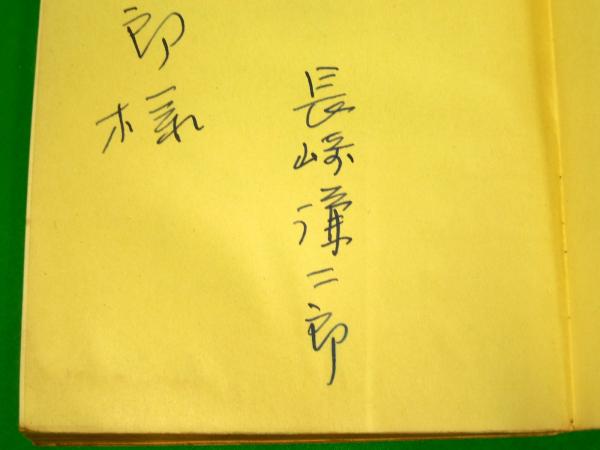 郎様
長崎謙二郎